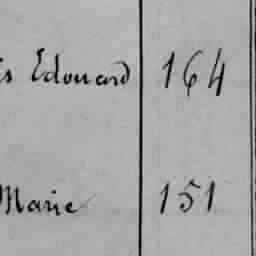 is Edouard 164
Marie 151